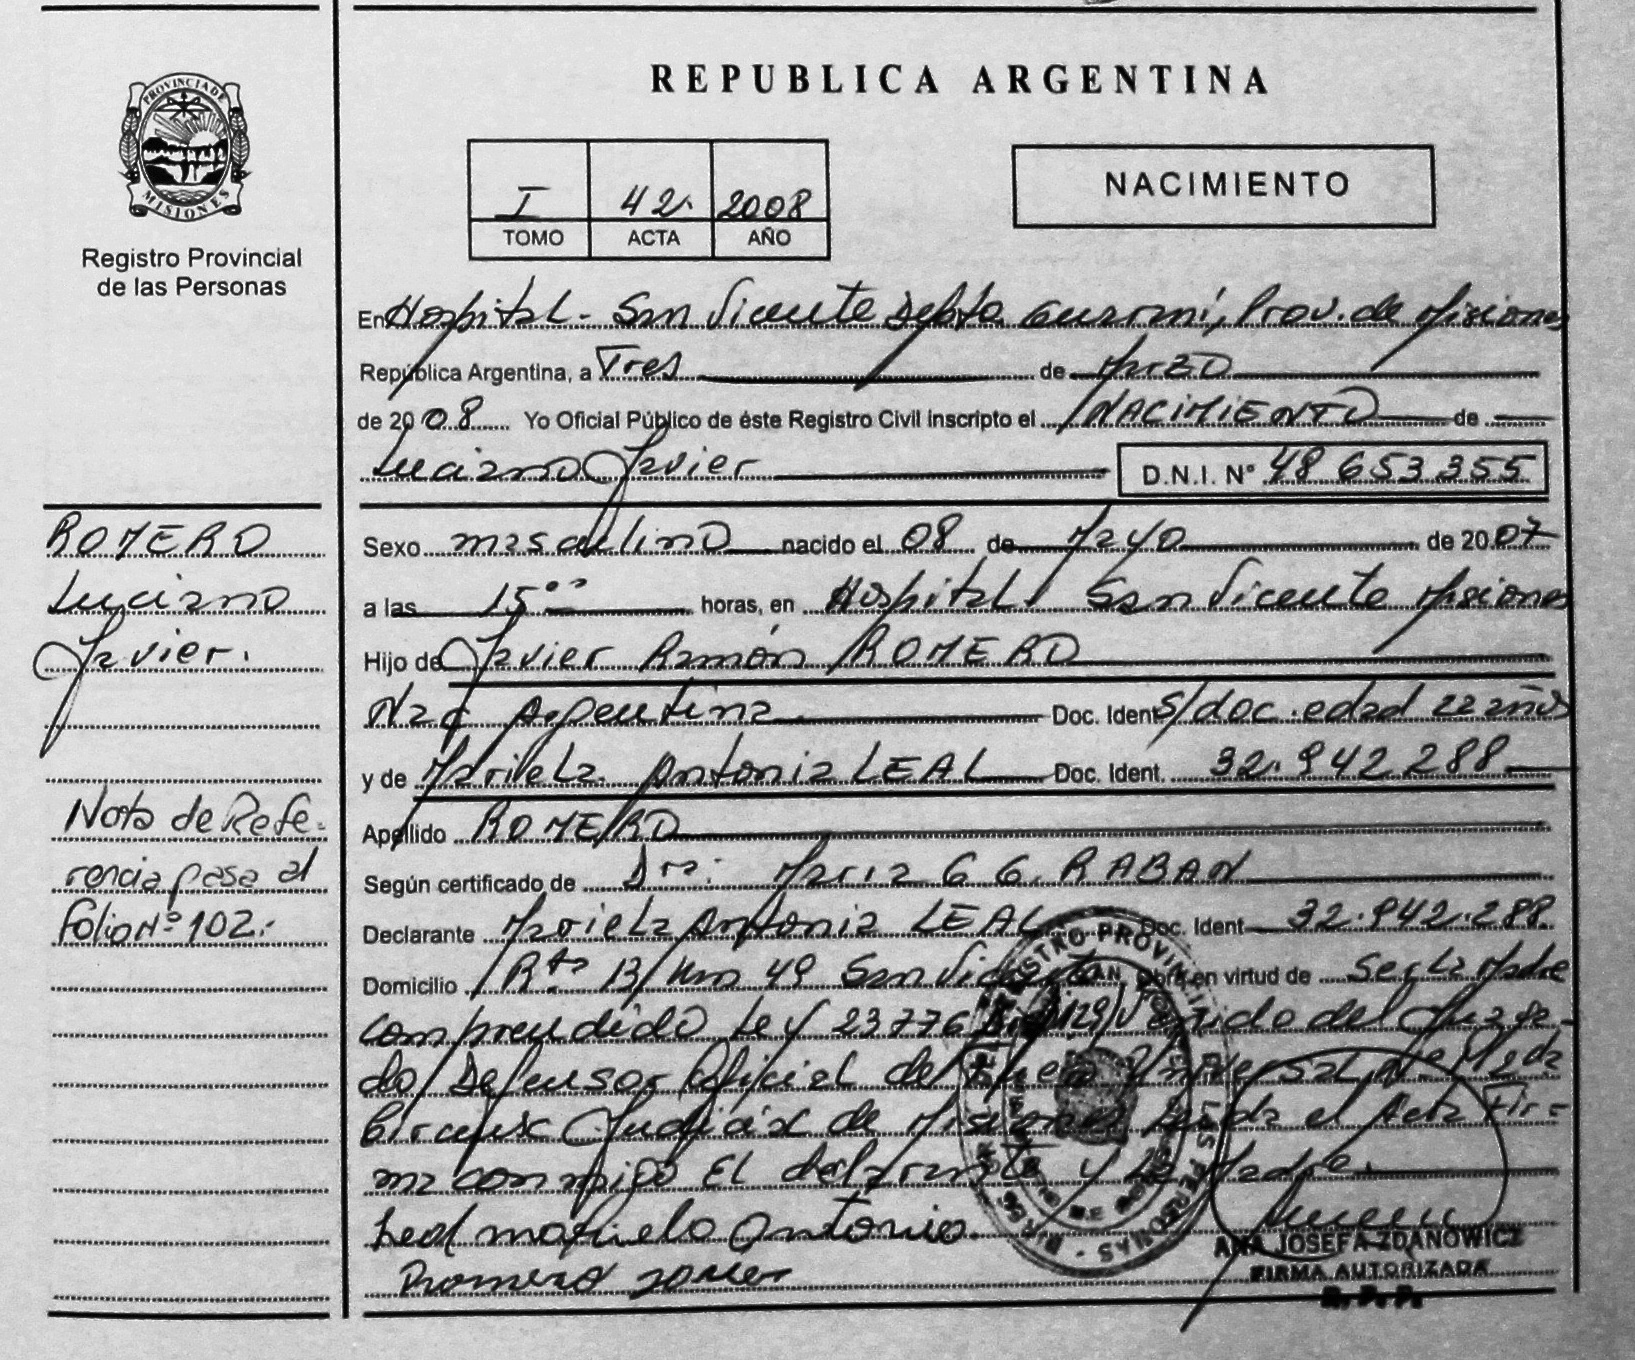 PROVINCIA DE
MISIONES
Registro Provincial
de las Personas
REPUBLICA ARGENTINA
I 42. 2008
TOMO ACTA AÑO
NACIMIENTO
En Hospital - San Vicente Depto Guaraní, Prov. de Misiones
República Argentina, a Tres de Marzo
de 2008 Yo Oficial Público de éste Registro Civil Inscripto el NACIMIENTO de
Luciano Javier D.N.I. Nº 48 653 355
ROMERO
Luciano
Javier.
Nota de Refe-
rencia pasa al
folio Nº 102.-
Sexo masculino nacido el 08 de Mayo de 2007
a las 15°° horas, en Hospital San Vicente Misiones
Hijo de Javier Ramón ROMERO
Nac Argentina Doc. Ident S/doc. edad 22 años
y de Mariela Antonia LEAL Doc. Ident. 32.942 288
Apellido ROMERO
Según certificado de Dra: Maria G G. RABAN
Declarante Mariela Antonia LEAL Doc. Ident 32.942.288.
Domicilio Rta 13 Km 49 San Vicente Obra en virtud de ser la Madre
comprendido Ley 23776 del Juzga-
do Defensor Oficial de
Judicial de Misiones Leida el Acta Fir-
ma conmigo El declarante y la Madre.
Leal mariela Antonia.
Romero Javier
ANA JOSEFA ZDANOWICZ
FIRMA AUTORIZADA
R. P. P.